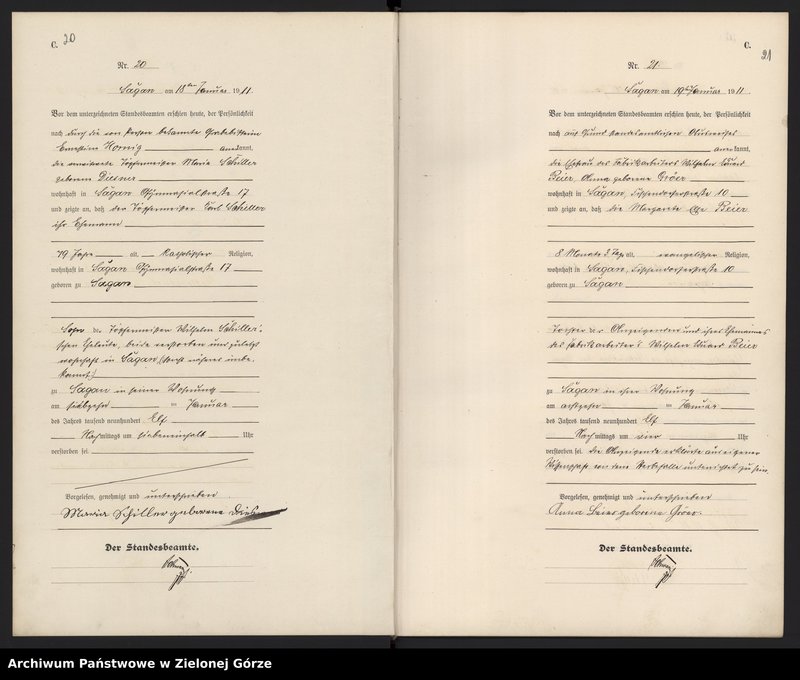 C. 20
Nr. 20
Sagan am 18ten Januar 1911.
Vor dem unterzeichneten Standesbeamten erschien heute, der Persönlichkeit
nach durch die von Person bekannte
Ernestine Hornig anerkannt,
die verwitwete Töpfermeister Maria Schiller
geborene Diesner
wohnhaft in Sagan Gymnasialstraße 17
und zeigte an, daß der Töpfermeister Carl Schiller
ihr Ehemann
79 Jahre alt, katholischer Religion,
wohnhaft in Sagan Gymnasialstraße 17
geboren zu Sagan
Sohn der Töpfermeister Wilhelm Schiller'
schen Eheleute, beide verstorben und zuletzt
wohnhaft in Sagan, (sonst näheres unbe-
kannt.)
zu Sagan in seiner Wohnung
am siebzehn ten Januar
des Jahres tausend neunhundert Elf
Nachmittags um siebeneinhalb Uhr
verstorben sei.
Vorgelesen, genehmigt und unterschrieben
Maria Schiller geborene Diesner
Der Standesbeamte.
C. 21
Nr. 21.
Sagan am 19. Januar 1911.
Vor dem unterzeichneten Standesbeamten erschien heute, der Persönlichkeit
nach auf Grund standesamtlichen Ausweises
anerkannt,
die Ehefrau des Fabrikarbeiters Wilhelm Eduard
Beier, Anna geborene Gröer
wohnhaft in Sagan, Fischendorferstraße 10
und zeigte an, daß die Margarete Beier
8 Monate 2 Tage alt, evangelischer Religion,
wohnhaft in Sagan, Fischendorferstraße 10
geboren zu Sagan
Tochter der Anzeigenden und ihres Ehemannes
des Fabrikarbeiters Wilhelm Eduard Beier
zu Sagan in ihrer Wohnung
am achtzehn ten Januar
des Jahres tausend neunhundert Elf
Nachmittags um vier Uhr
verstorben sei. Die Anzeigende erklärte aus eigener
Wissenschaft von dem Sterbefalle unterrichtet zu sein.
Vorgelesen, genehmigt und unterschrieben
Anna Beier geborene Gröer.
Der Standesbeamte.
Archiwum Państwowe w Zielonej Górze